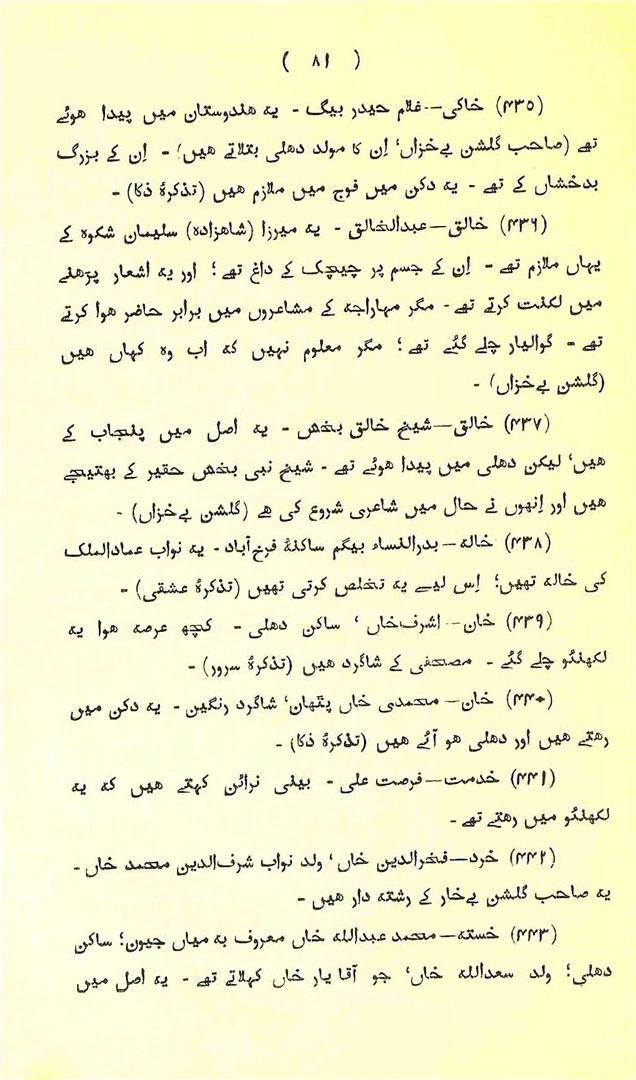 ( ۸۱ )
(۴۳۵) خاکی—غلام حیدر بیگ - یه هندوستان میں پیدا هوئے
تھے (صاحب گلشن بےخزاں، اِن کا مولد دهلی بتلاتے هیں) - اِن کے بزرگ
بدخشاں کے تھے - یه دکن میں فوج میں ملازم هیں (تذکرۂ ذکا) -
(۴۳۶) خالق—عبدالخالق - یه میرزا (شاهزاده) سلیمان شکوه کے
یہاں ملازم تھے - اِن کے جسم پر چیچک کے داغ تھے؛ اور یه اشعار پڑھنے
میں لکنت کرتے تھے - مگر مہاراجه کے مشاعروں میں برابر حاضر هوا کرتے
تھے - گوالیار چلے گئے تھے؛ مگر معلوم نہیں که اب وه کہاں هیں
(گلشن بےخزاں) -
(۴۳۷) خالق—شیخ خالق بخش - یه اصل میں پنجاب کے
هیں، لیکن دهلی میں پیدا هوئے تھے - شیخ نبی بخش حقیر کے بھتیجے
هیں اور اِنھوں نے حال میں شاعری شروع کی هے (گلشن بےخزاں) -
(۴۳۸) خاله—بدرالنساء بیگم ساکنۂ فرخ‌آباد - یه نواب عمادالملک
کی خاله تھیں؛ اِس لیے یه تخلص کرتی تھیں (تذکرۂ عشقی) -
(۴۳۹) خان—اشرف‌خاں، ساکن دهلی - کچھ عرصه هوا یه
لکھنئو چلے گئے - مصحفی کے شاگرد هیں (تذکرۂ سرور) -
(۴۴۰) خان—محمدی خاں پٹھان، شاگرد رنگین - یه دکن میں
رهتے هیں اور دهلی هو آئے هیں (تذکرۂ ذکا) -
(۴۴۱) خدمت—فرصت علی - بینی نرائن کہتے هیں که یه
لکھنئو میں رهتے تھے -
(۴۴۲) خرد—فخرالدین خاں، ولد نواب شرف‌الدین محمد خاں -
یه صاحب گلشن بےخار کے رشته دار هیں -
(۴۴۳) خسته—محمد عبدالله خاں معروف به میاں جیون؛ ساکن
دهلی؛ ولد سعدالله خاں، جو آقا یار خاں کہلاتے تھے - یه اصل میں